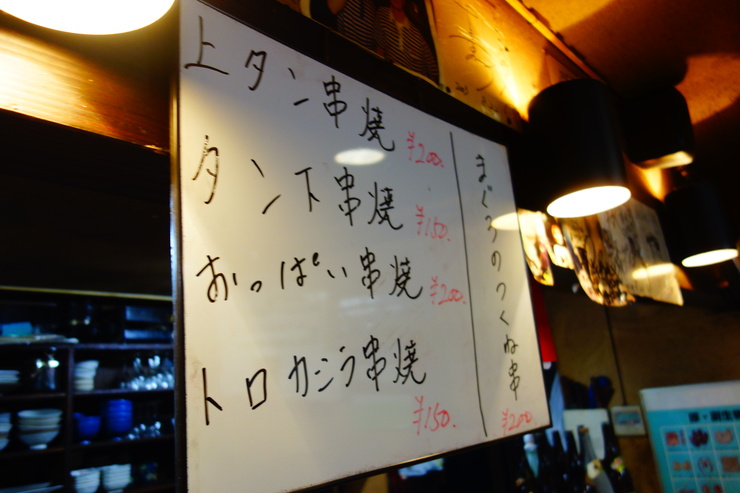 上タン串焼 ¥200.
タン下串焼 ¥150.
おっぱい串焼 ¥200.
トロカシラ串焼 ¥150.
まぐろのつくね串 ¥200